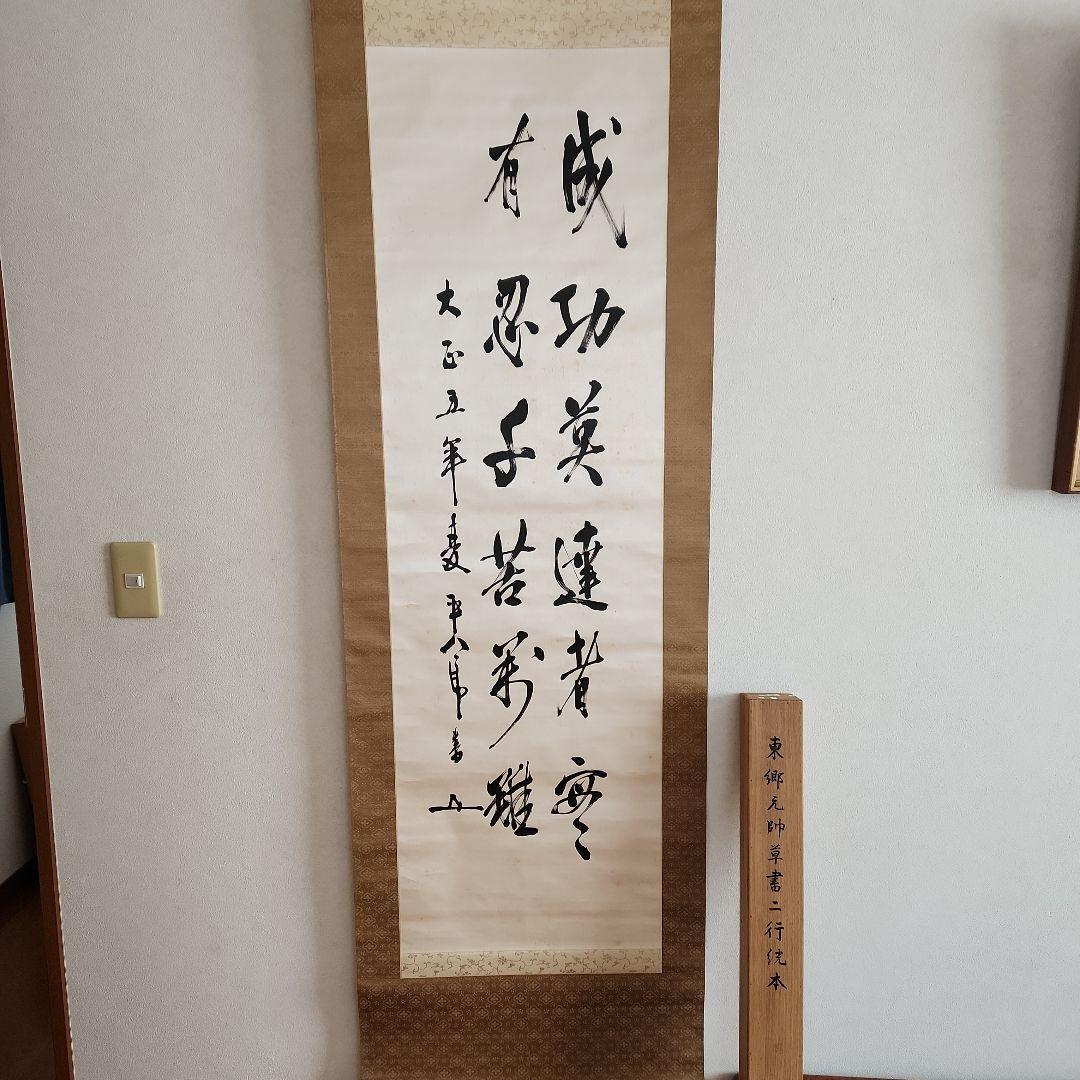 成功莫達者寥々
有忍千苦萬難
大正五年夏 平八郎書
東郷元帥草書二行絖本